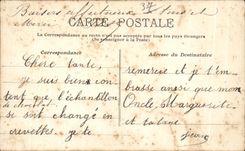 Baisers
CARTE POSTALE
La correspondance au recto n'est pas acceptée par tous les pays étrangers
(Se renseigner à la Poste)
Correspondance
Adresse du Destinataire
Chère tante,
je suis bien con
tent que l'échantillon
se soit change en
crevettes. je te
remercie et je t'em
brasse ainsi que mon
Oncle, Marguerite
et